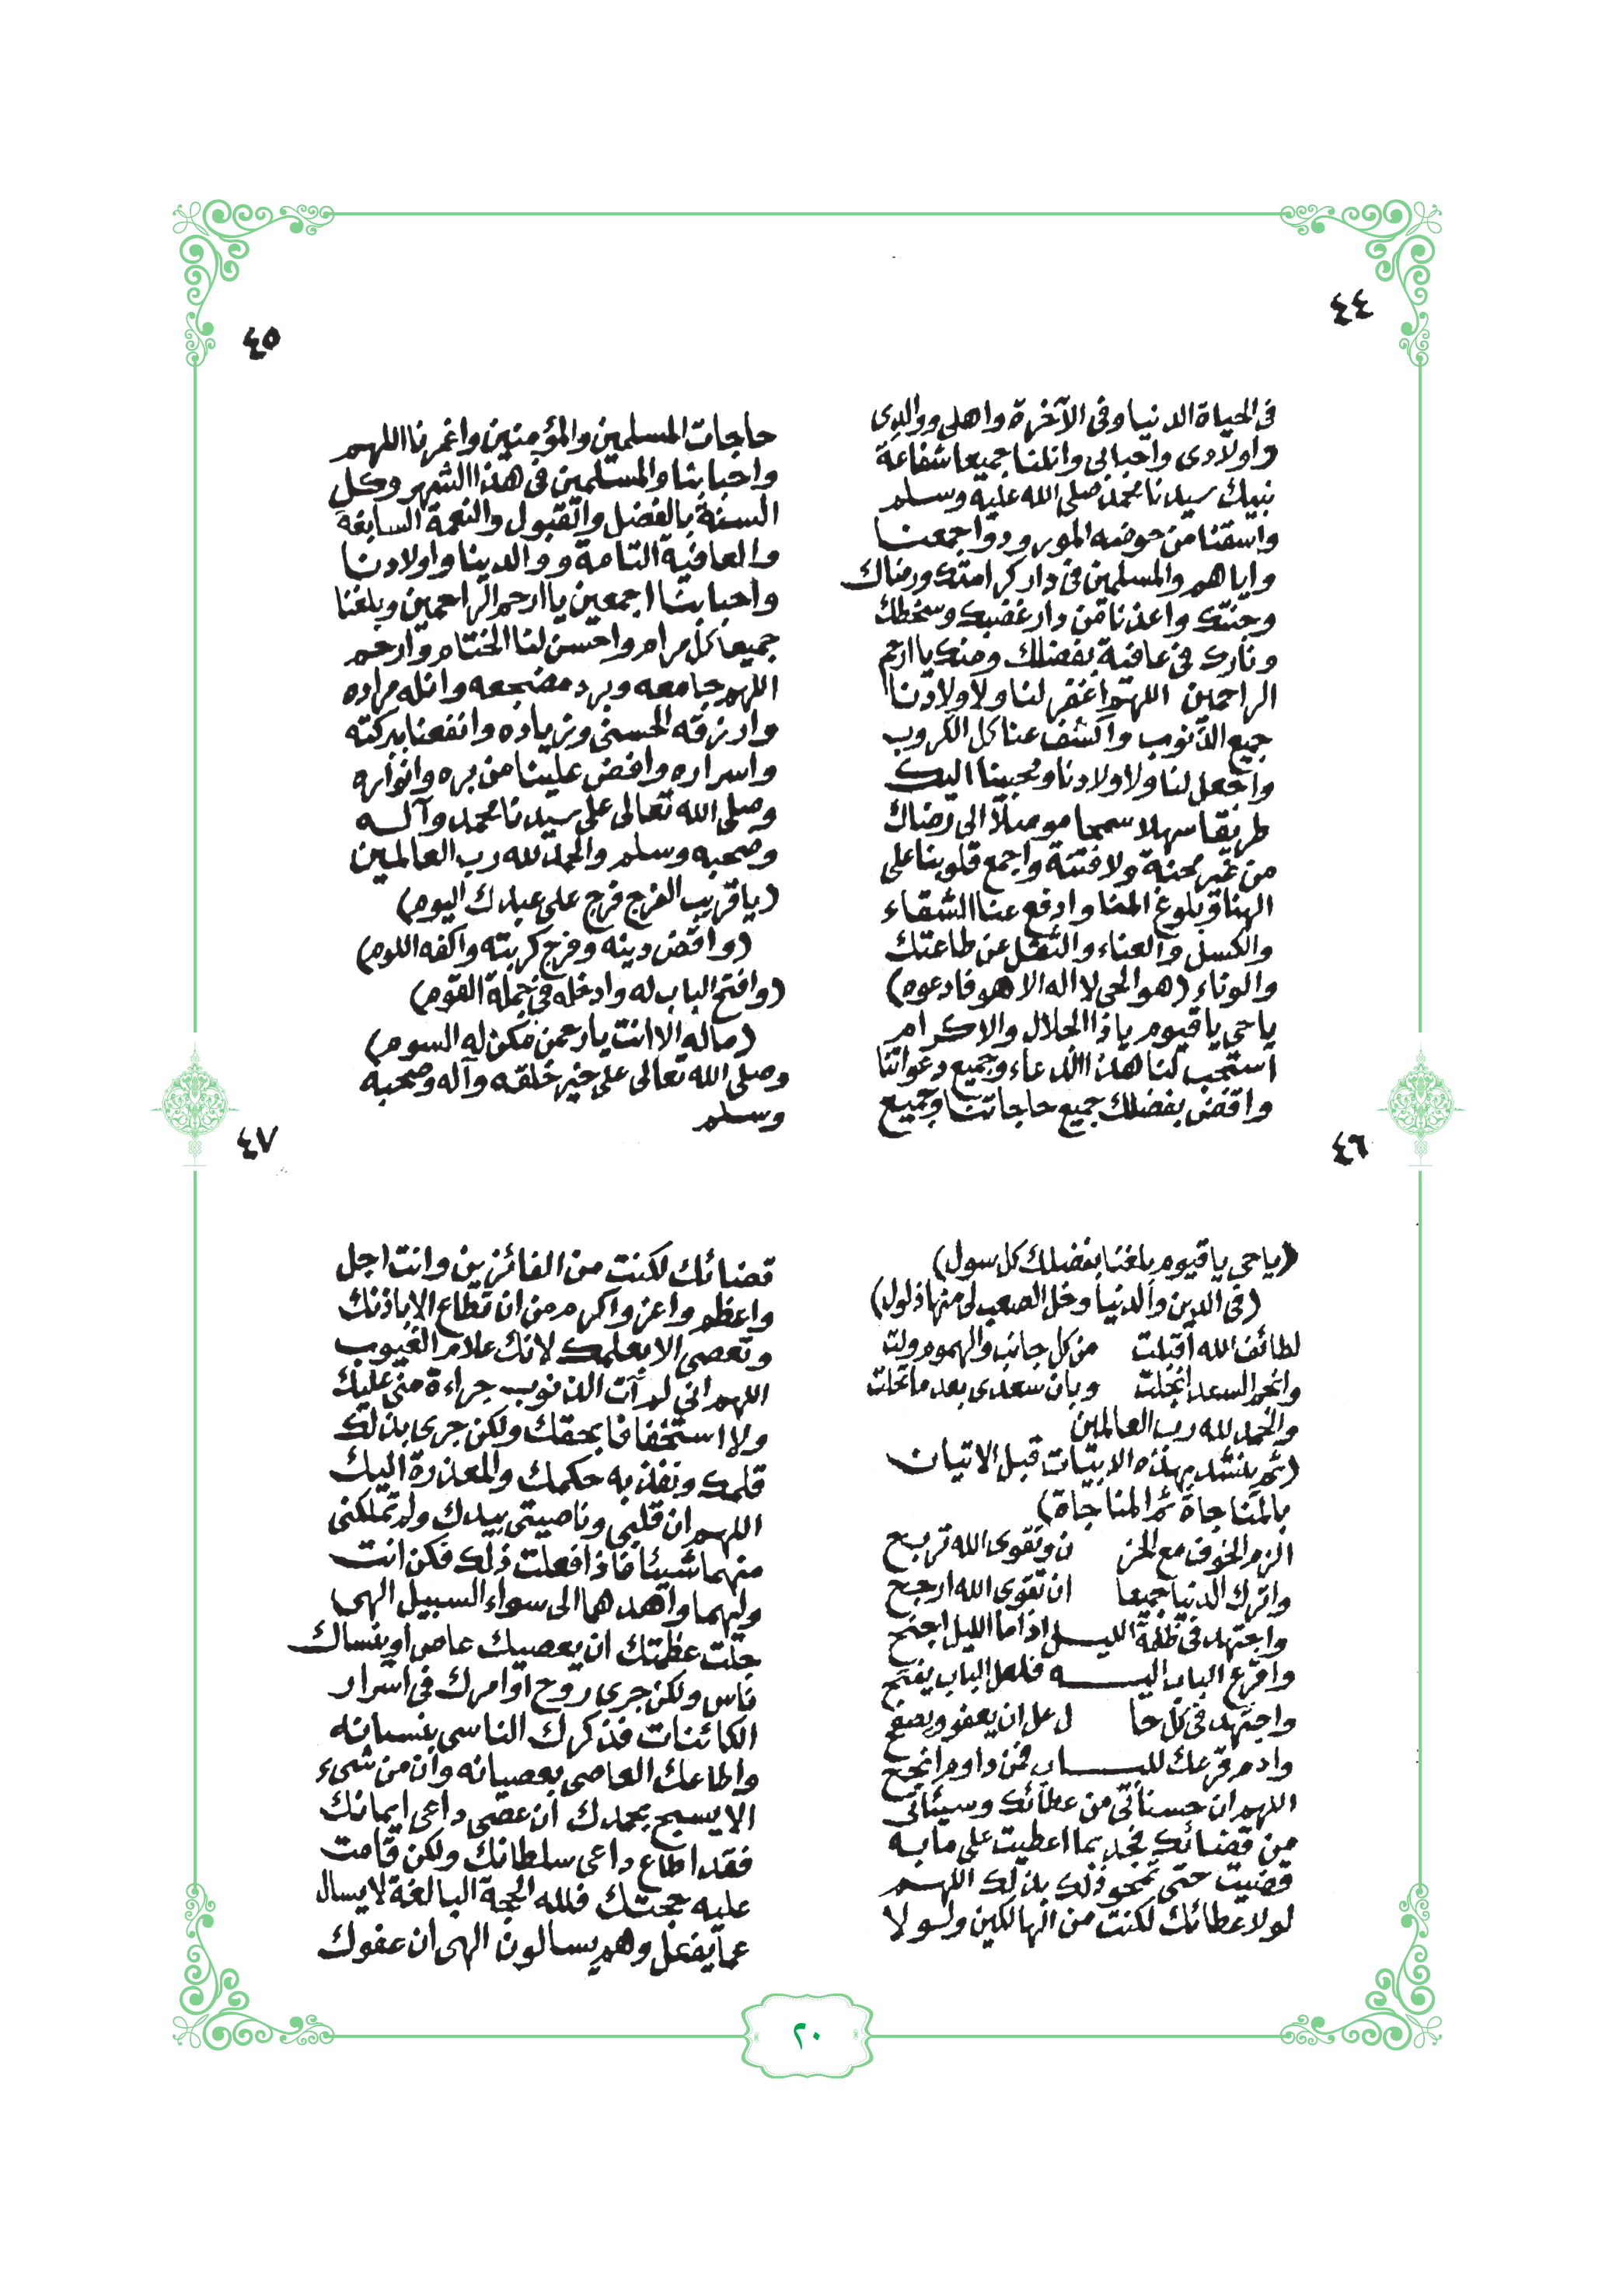 ٤٤
فى الحياة الدنيا وفى الآخرة واهلى ووالدى
واولادى واحبابى وانلنا جميعا شفاعة
نبيك سيدنا محمد صلى الله عليه وسلم
واسقنا من حوضه المورود واجمعنا
واياهم والمسلمين فى دار كرامتك ورضاك
وجنتك واعذنا من دار غضبك وسخطك
ونارك فى عافية بفضلك ومنك يا ارحم
الراحمين اللهم اغفر لنا ولاولادنا
جميع الذنوب واكشف عنا كل الكروب
واجعل لنا ولاولادنا ومحبينا اليك
طريقا سهلا سمحا موصلا الى رضاك
من غير محنة ولا فتنة واجمع قلوبنا على
الهنا وبلوغ المنا وادفع عنا الشقاء
والكسل والعناء والثقل عن طاعتك
والوناء (هو الحى لا اله الا هو فادعوه)
يا حى يا قيوم يا ذا الجلال والاكرام
استجب لنا هذا الدعاء وجميع دعواتنا
واقض بفضلك جميع حاجاتنا وجميع
٤٥
حاجات المسلمين والمؤمنين واغمرنا اللهم
واحبابنا والمسلمين فى هذا الشهر وكل
السنة بالفضل والقبول والنعمة السابغة
والعافية التامة ووالدينا واولادنا
واحبابنا اجمعين يا ارحم الراحمين وبلغنا
جميعا كل مرام واحسن لنا الختام وارحم
اللهم جامعه وبرد مضجعه وانله مراده
وارزقه الحسنى وزياده وانفعنا ببركته
واسراره وافض علينا من بره وانواره
وصلى الله تعالى على سيدنا محمد وآله
وصحبه وسلم والحمد لله رب العالمين
(يا قريب الفرج فرج على عبدك اليوم)
(واقض دينه وفرج كربته واكفه اللوم)
(وافتح الباب له وادخله فى جملة القوم)
(ماله الا انت يا رحمن مكن له السوم)
وصلى الله تعالى على خير خلقه وآله وصحبه
وسلم
٤٦
(يا حى يا قيوم بلغنا بفضلك كل سول)
(فى الدين والدنيا وخل الصعب لى منها ذلول)
لطائف الله اقبلت من كل جانب والهموم ولت
وانجم السعد انجلت وبان سعدى بعد ما تخلت
والحمد لله رب العالمين
(ثم ينشد بهذه الابيات قبل الاتيان
بالمناجاة ثم المناجاة)
الزم الخوف مع الحز ن وتقوى الله تربح
واترك الدنيا جميعا ان تقوى الله ارجح
واجتهد فى ظلمة الليل اذا ما الليل اجنح
واقرع الباب اليه فلعل الباب يفتح
واجتهد فى كل حا ل عل ان يعفو ويصفح
وادم قرعك للباب فمن داوم انجح
اللهم ان حسناتى من عطائك وسيئاتى
من قضائك فجد بما اعطيت على ما به
قضيت حتى تمحو ذلك بذلك اللهم
لولا عطائك لكنت من الهالكين ولولا
٤٧
قضائك لكنت من الفائزين وانت اجل
واعظم واعز واكرم من ان تطاع الا باذنك
وتعصى الا بعلمك لانك علام الغيوب
اللهم انى لم آت الذنوب جراءة منى عليك
ولا استخفافا بحقك ولكن جرى بذلك
قلمك ونفذ به حكمك والمعذرة اليك
اللهم ان قلبى وناصيتى بيدك ولم تملكنى
منهما شيئا فاذا فعلت ذلك فكن انت
وليهما واهدهما الى سواء السبيل الهى
جلت عظمتك ان يعصيك عاص او ينساك
ناس ولكن جرى روح اوامرك فى اسرار
الكائنات فذكرك الناسى بنسيانه
واطاعك العاصى بعصيانه وان من شىء
الا يسبح بحمدك ان عصى داعى ايمانك
فقد اطاع داعى سلطانك ولكن قامت
عليه حجتك فلله الحجة البالغة لا يسال
عما يفعل وهم يسالون الهى ان عفوك
٢٠